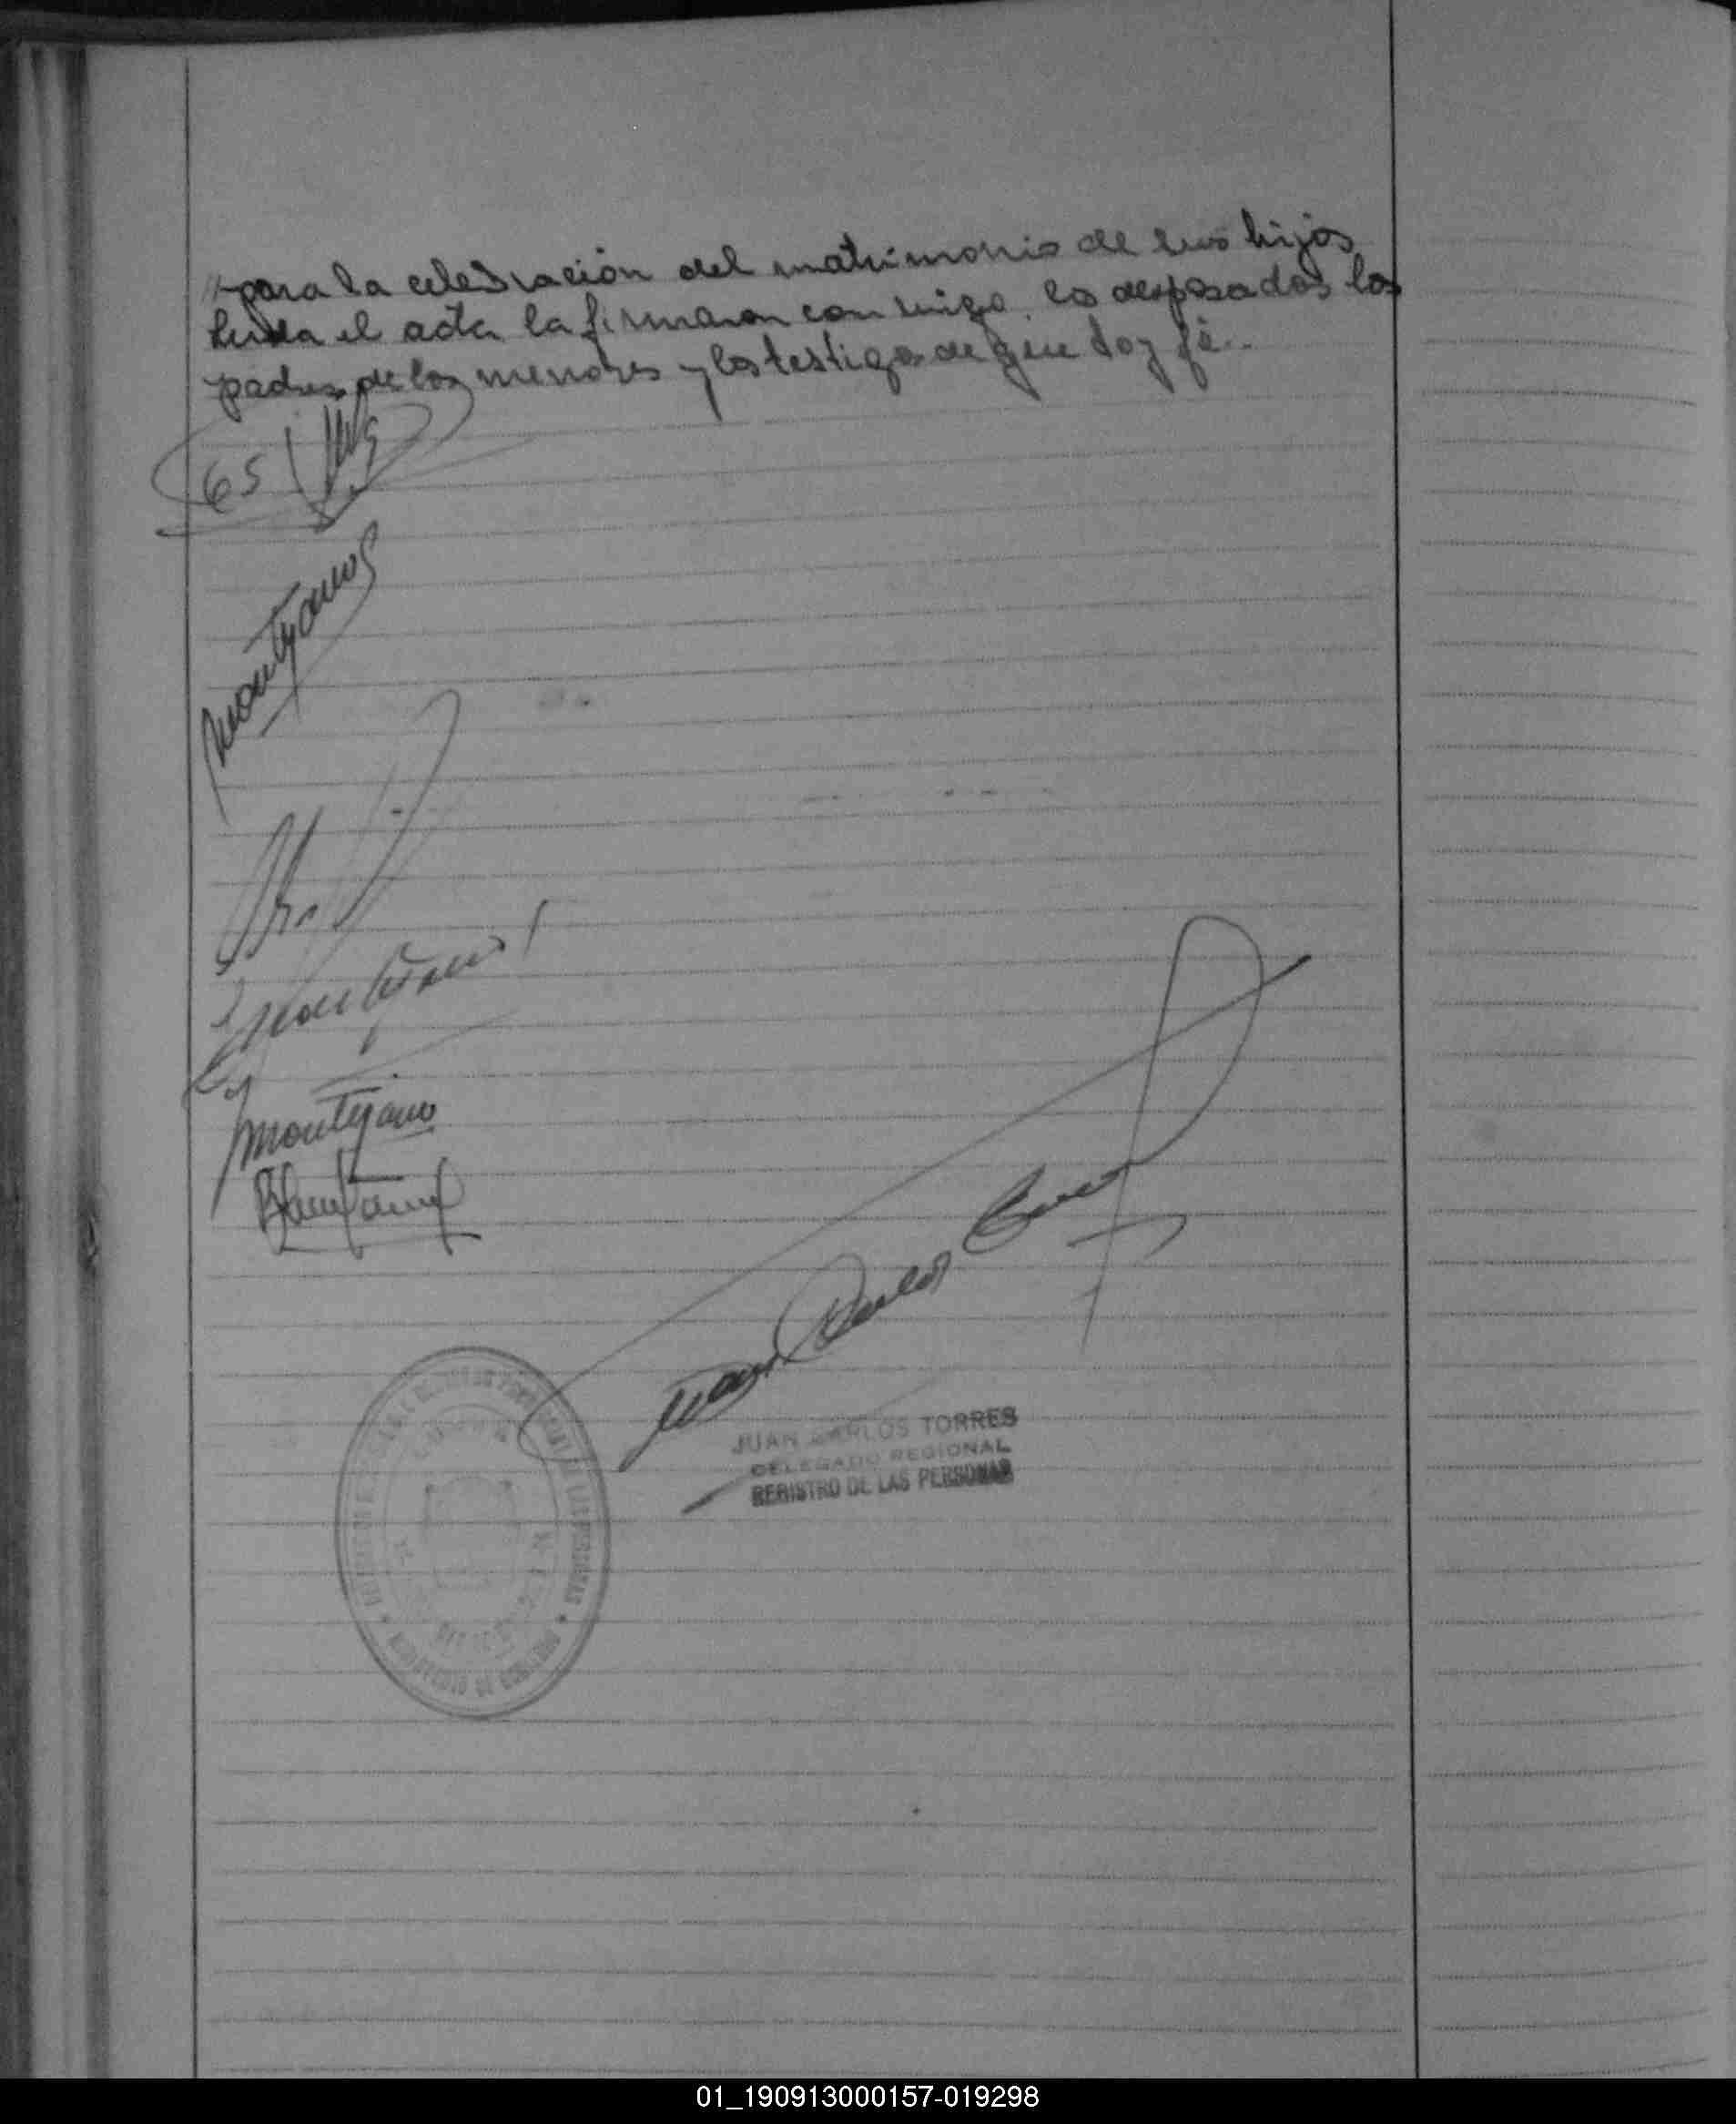 // para la celebración del matrimonio de sus hijos
Leida el acta la firmaron conmigo, los desposados los
padres de los menores y los testigos de que doy fé..
65
Montejano
Montejano
Montejano
Juan Carlos Torres
JUAN CARLOS TORRES
DELEGADO REGIONAL
REGISTRO DE LAS PERSONAS
DE LAS PERSONAS
MINISTERIO DE GOBIERNO
01_190913000157-019298